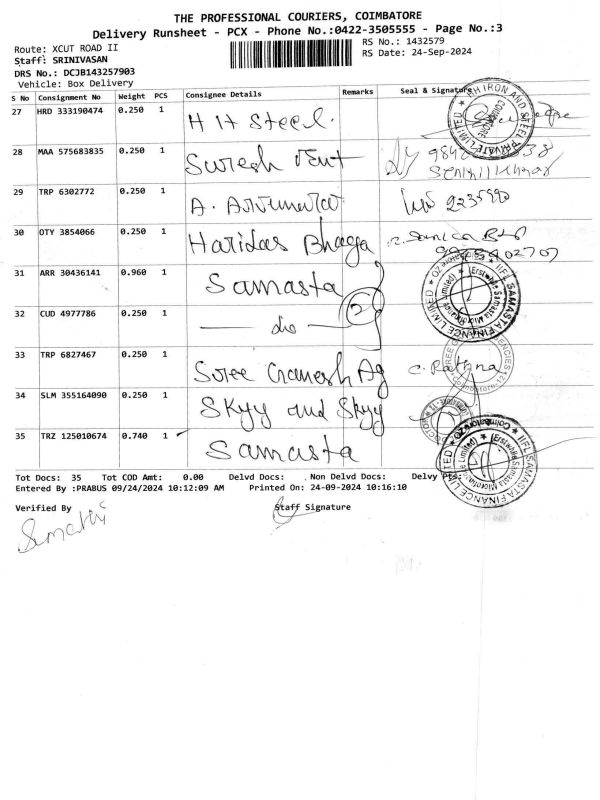 THE PROFESSIONAL COURIERS, COIMBATORE
Delivery Runsheet - PCX - Phone No.:0422-3505555 - Page No.:3
Route: XCUT ROAD II
RS No.: 1432579
Staff: SRINIVASAN
RS Date: 24-Sep-2024
DRS No.: DCJB143257903
Vehicle: Box Delivery
S No Consignment No Weight PCS Consignee Details Remarks Seal & Signature
27 HRD 333190474 0.250 1 H H Steel.
28 MAA 575683835 0.250 1 Suresh
29 TRP 6302772 0.250 1 A.
30 OTY 3854066 0.250 1 Haridas Bhaga
31 ARR 30436141 0.960 1 Samasta
32 CUD 4977786 0.250 1 — do — 2
33 TRP 6827467 0.250 1 Sree Ganesh Ag C. Rathna
34 SLM 355164090 0.250 1 Skyy and Skyy
35 TRZ 125010674 0.740 1 Samasta
IIFL SAMASTA FINANCE LIMITED
(Erstwhile Samasta Microfinance Limited)
IIFL SAMASTA FINANCE LIMITED
(Erstwhile Samasta Microfinance Limited)
Tot Docs: 35 Tot COD Amt: 0.00 Delvd Docs: . Non Delvd Docs: Delvy
Entered By :PRABUS 09/24/2024 10:12:09 AM Printed On: 24-09-2024 10:16:10
Verified By Staff Signature